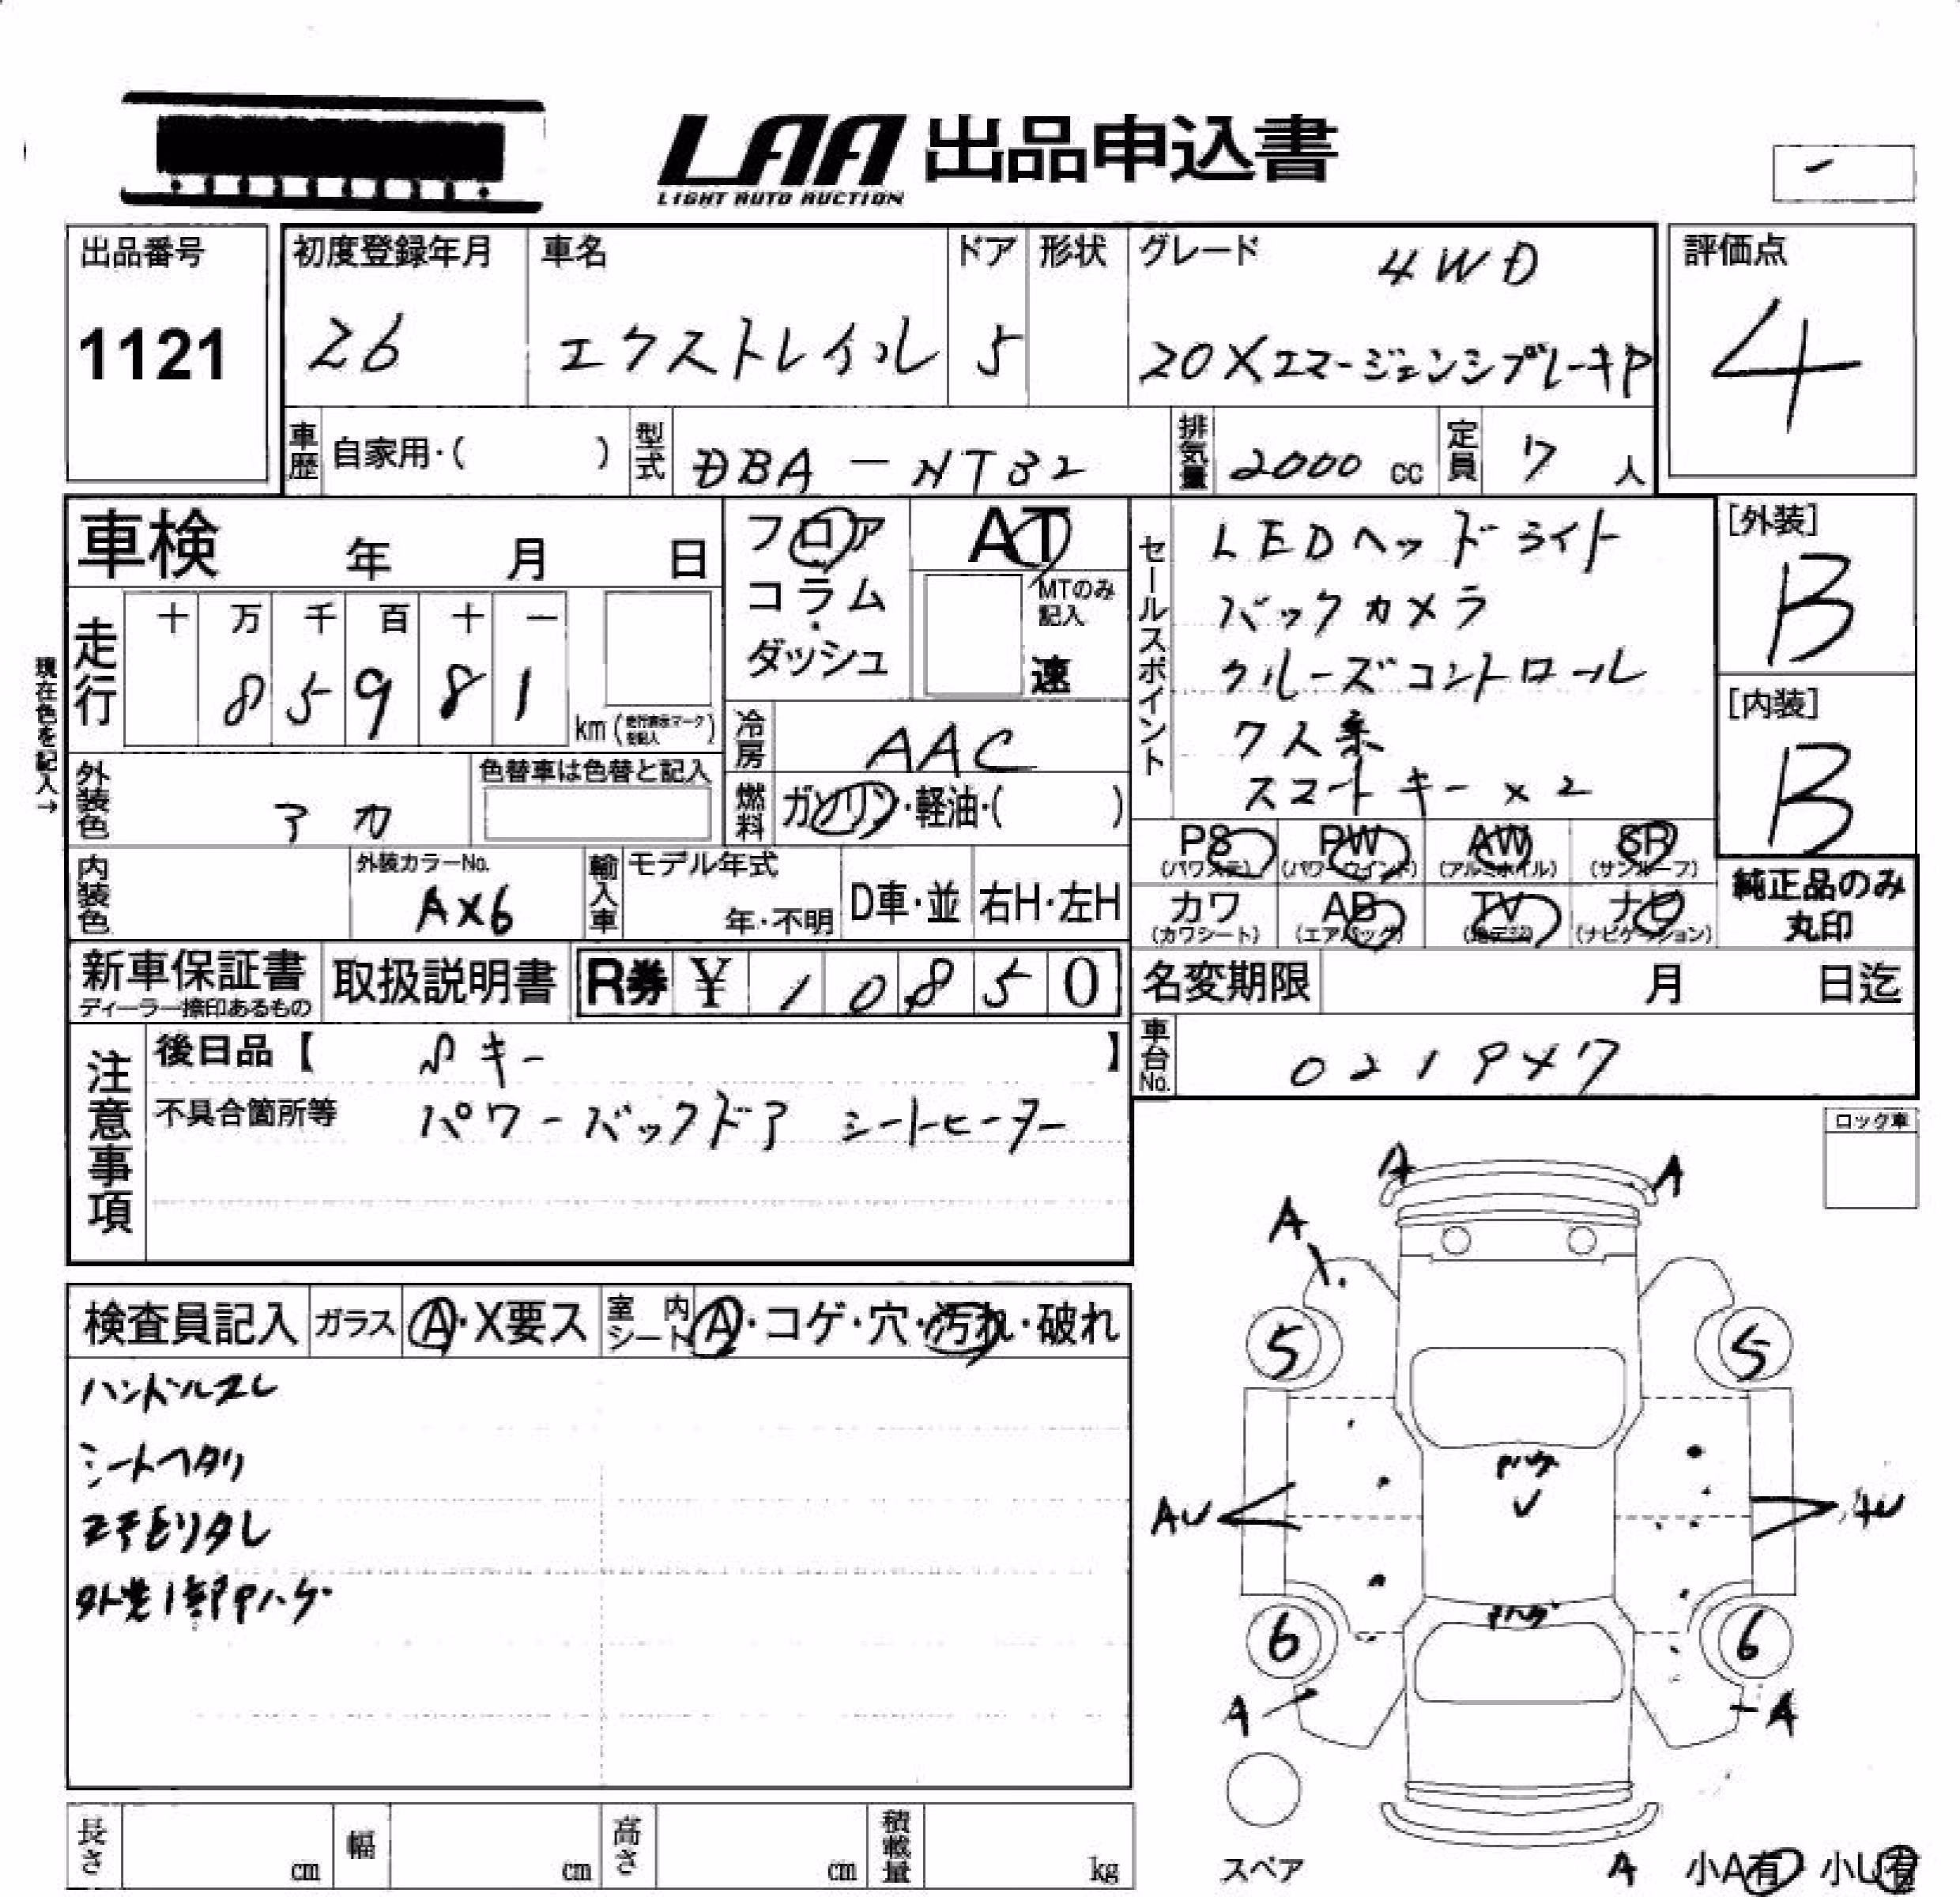 LAA 出品申込書
LIGHT AUTO AUCTION
出品番号
1121
初度登録年月
26
車名
エクストレイル
ドア
5
形状
グレード 4WD
20XエマージェンシブレーキP
評価点
4
車歴 自家用・( )
型式 DBA-NT32
排気量 2000 cc
定員 7 人
車検 年 月 日
フロア
コラム
ダッシュ
AT
MTのみ記入
速
セールスポイント
LEDヘッドライト
バックカメラ
クルーズコントロール
7人乗
スマートキー×2
[外装]
B
[内装]
B
現在色を記入→
走行
十 万 千 百 十 一
8 5 9 8 1
km (走行表示マークを記入)
冷房 AAC
燃料 ガソリン・軽油・( )
外装色 アカ
色替車は色替と記入
内装色
外装カラーNo.
AX6
輸入車
モデル年式
年・不明
D車・並
右H・左H
PS (パワステ)
PW (パワーウインド)
AW (アルミホイル)
SR (サンルーフ)
カワ (カワシート)
AB (エアバッグ)
TV (地デジ)
ナビ (ナビゲーション)
純正品のみ
丸印
新車保証書
ディーラー捺印あるもの
取扱説明書
R券 ¥ 1 0 8 5 0
名変期限 月 日迄
車台No. 021947
注意事項
後日品【 キー 】
不具合箇所等 パワーバックドア シートヒーター
ロック車
検査員記入
ガラス A・X要ス
室内シート A・コゲ・穴・汚れ・破れ
ハンドルスレ
シートヘタリ
外装1部Pハゲ
A
A
A
5
5
Pハゲ
AU
AU
Pハゲ
6
6
A
A
スペア
A 小A有 小U有
長さ cm
幅 cm
高さ cm
積載量 kg